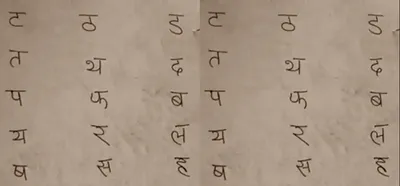 ट ठ ड ट ठ ड
त थ द त थ द
प फ ब प फ ब
य ल य ल
ष स ष स